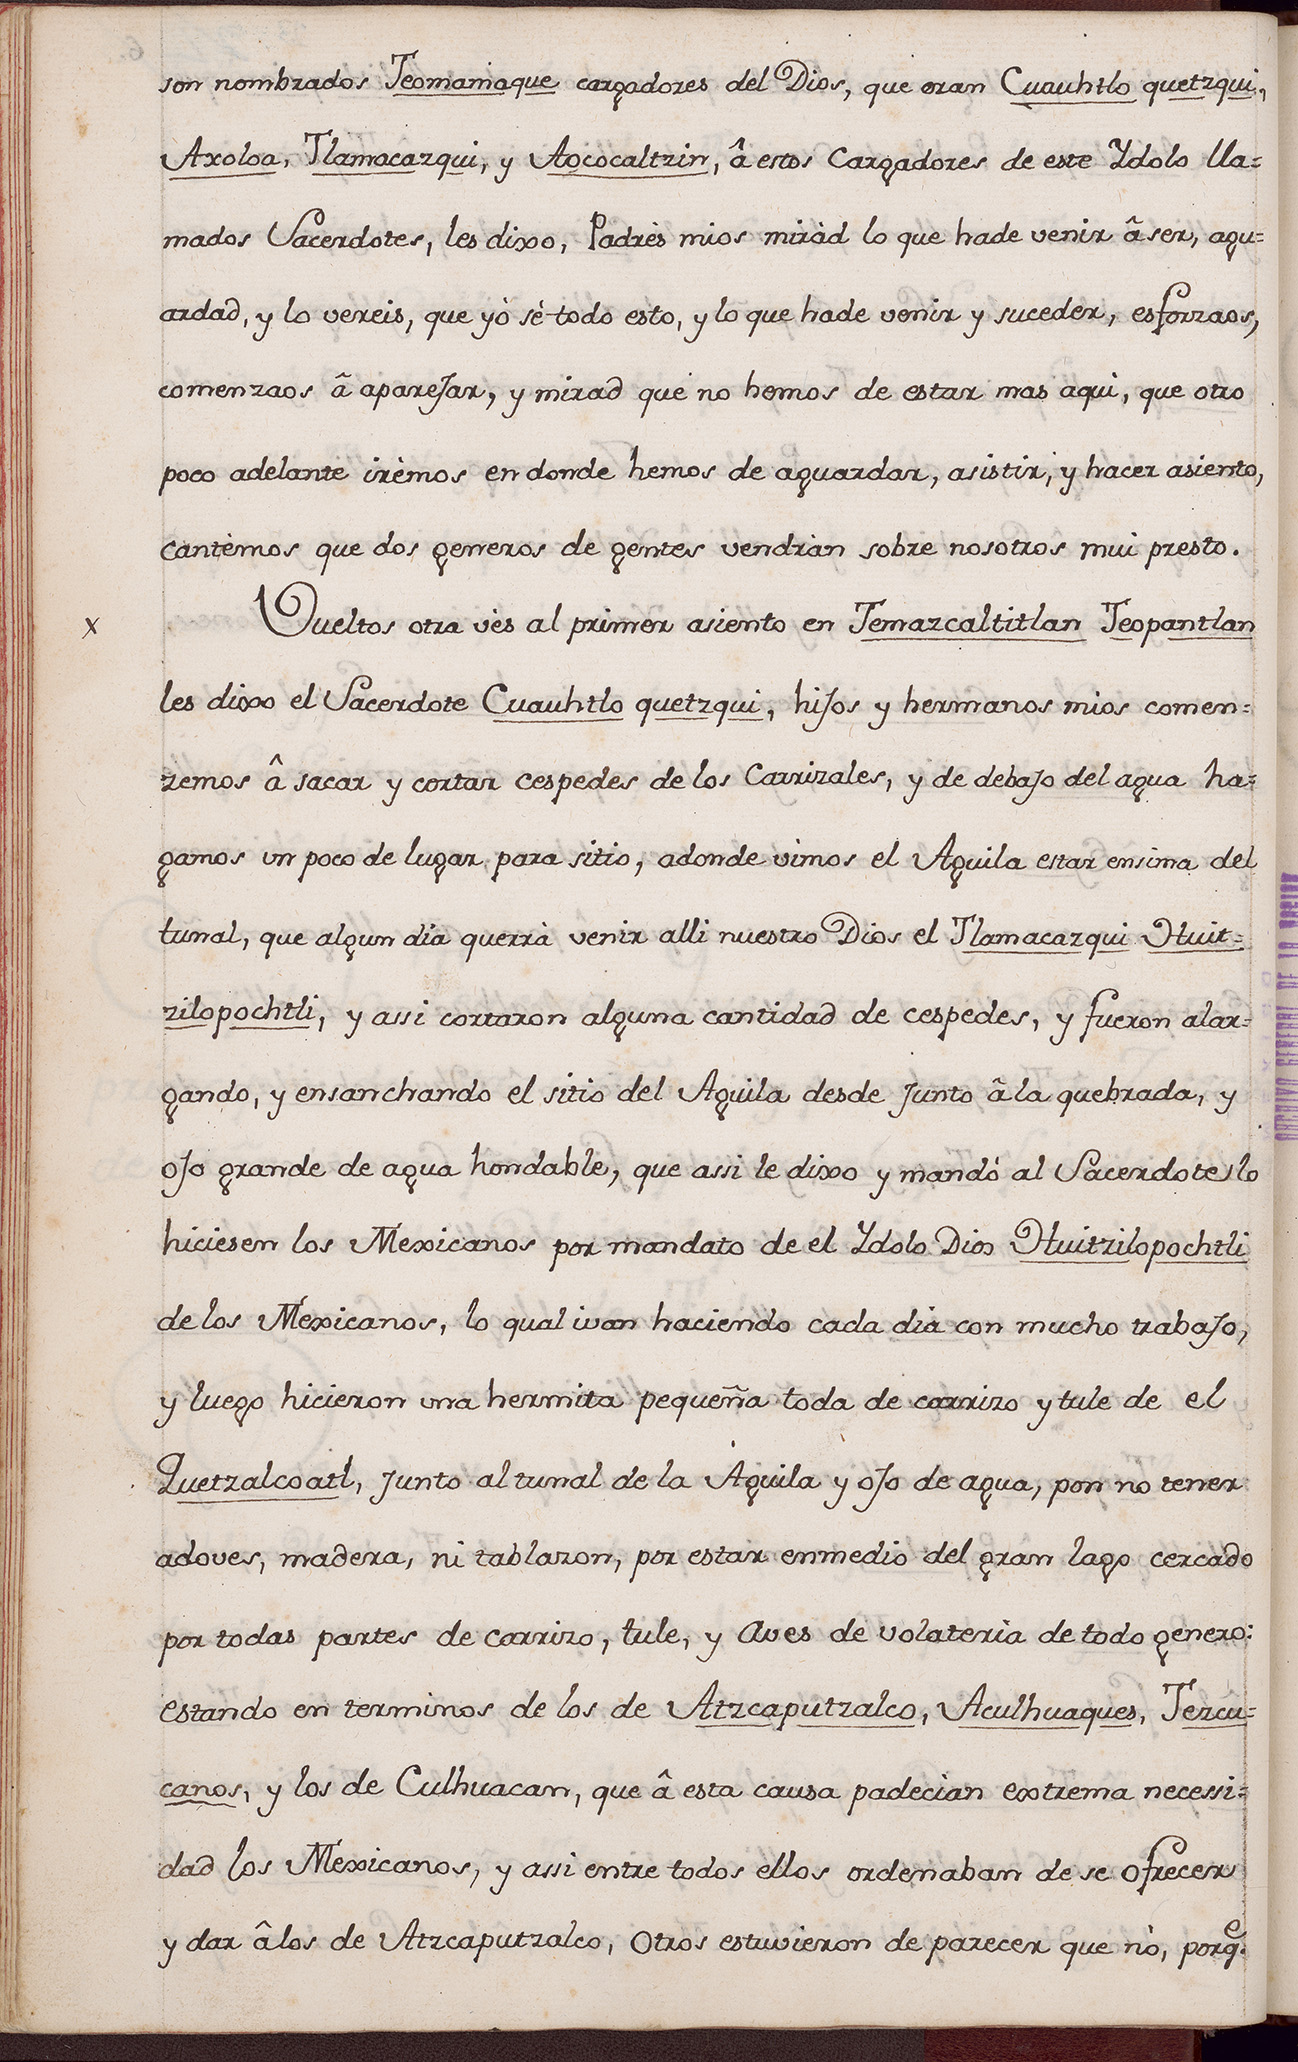 son nombrados Teomamaque cargadores del Dios, que eran Cuauhtlo quetzqui,
Axoloa, Tlamacazqui, y Aococaltzin, â estos Cargadores de este Ydolo lla=
mados Sacerdotes, les dixo, Padrès mios miràd lo que hade venir â ser, agu=
ardad, y lo vereis, que yò sè todo esto, y lo que hade venir y suceder, esforzaos,
comenzaos â aparejar, y mirad que no hemos de estar mas aqui, que otro
poco adelante irèmos en donde hemos de aguardar, asistir, y hacer asiento,
cantèmos que dos generos de gentes vendràn sobre nosotros mui presto.
x Vueltos otra vès al primer asiento en Temazcaltitlan Teopantlan
les dixo el Sacerdote Cuauhtlo quetzqui, hijos y hermanos mios comen=
zemos â sacar y cortar cespedes de los Carrizales, y de debajo del agua ha=
gamos un poco de lugar para sitio, adonde vimos el Aguila estar ensima del
tunal, que algun dia querrà venir alli nuestro Dios el Tlamacazqui Huit=
zilopochtli, y assi cortaron alguna cantidad de cespedes, y fueron alar=
gando, y ensanchando el sitio del Aguila desde junto â la quebrada, y
ojo grande de agua hondable, que assi le dixo y mandó al Sacerdote lo
hiciesen los Mexicanos por mandato de el Ydolo Dios Huitzilopochtli
de los Mexicanos, lo qual ivan haciendo cada dia con mucho trabajo,
y luego hicieron una hermita pequeña toda de carrizo y tule de el
Quetzalcoatl, junto al tunal de la Aguila y ojo de agua, por no tener
adoves, madera, ni tablazon, por estar enmedio del gran lago cercado
por todas partes de carrizo, tule, y Aves de volateria de todo genero:
estando en terminos de los de Atzcaputzalco, Aculhuaques, Tezcu=
canos, y los de Culhuacan, que â esta causa padecian extrema necessi=
dad los Mexicanos, y assi entre todos ellos ordenaban de se ofrecer
y dar â los de Atzcaputzalco, Otros estuvieron de parecer que nò, porq.e
ARCHIVO GENERAL DE LA NACION